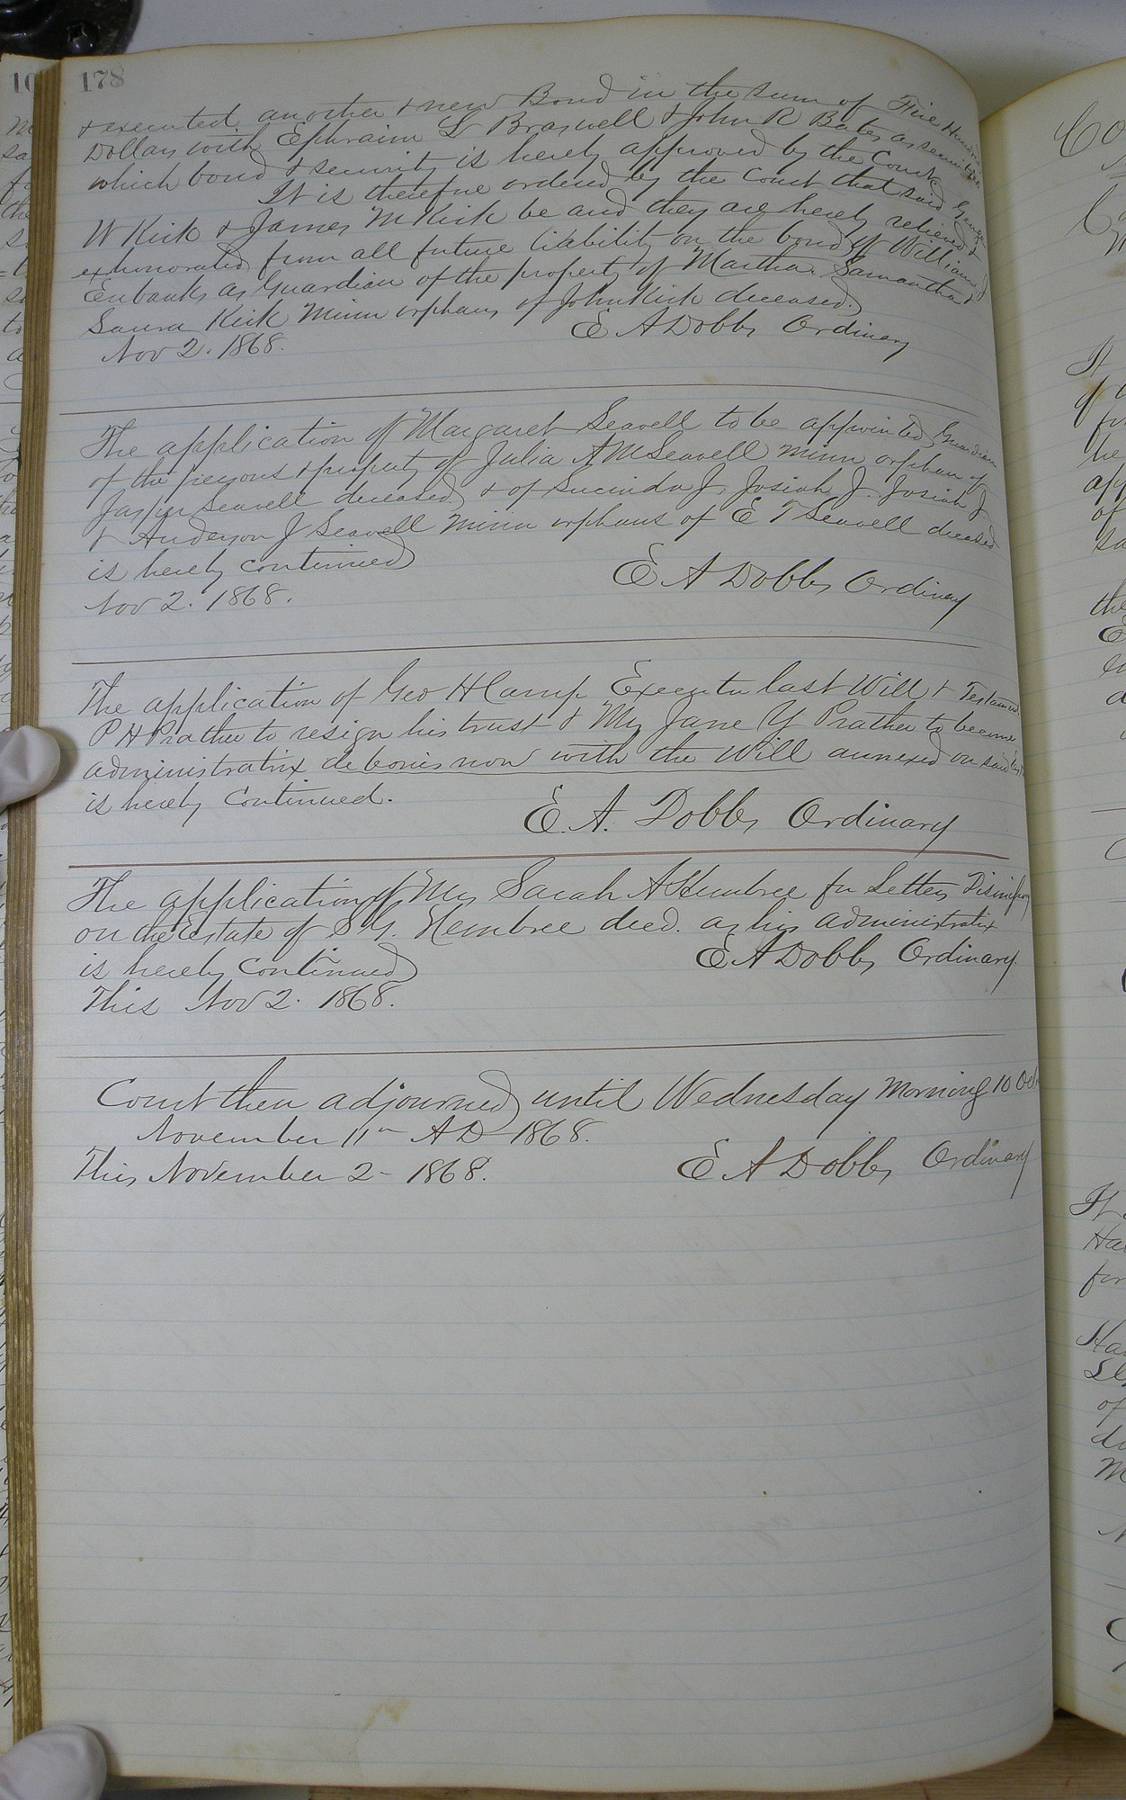 178
& executed another & new Bond in the sum of Five Hundred
Dollars with Ephraim L Braswell & John R Bates as securities
which bond & security is hereby approved by the Court
It is therefore ordered by the Court that said George
W Kirk & James M Kirk be and they are hereby relieved &
exhonorated from all future liability on the bond of William J
Eubanks as Guardian of the property of Martha Samantha &
Saura Kirk Minor orphans of John Kirk deceased.
E A Dobbs Ordinary
Nov 2. 1868.
The application of Margaret Seavell to be appointed Guardian
of the persons & property of Julia A M Seavell minor orphan of
Jasper Seavell deceased & of Lucinda J, Josiah J. Josiah J
& Anderson J Seavell Minor orphans of E T Seavell deceased
is hereby continued
E A Dobbs Ordinary
Nov 2. 1868.
The application of Geo H Camp Executor last Will & Testament
P H Prather to resign his trust & Mrs Jane Y Prather to become
administratrix debonis non with the Will annexed on said
is hereby Continued.
E. A. Dobbs Ordinary
The application of Mrs Sarah A Hembree for Letters Dismissory
on the Estate of S G. Hembree decd. as his administratrix
is hereby Continued
E A Dobbs Ordinary.
This Nov 2. 1868.
Court then adjourned until Wednesday Morning 10 Oclk
November 11th AD 1868.
This November 2- 1868.
E A Dobbs Ordinary